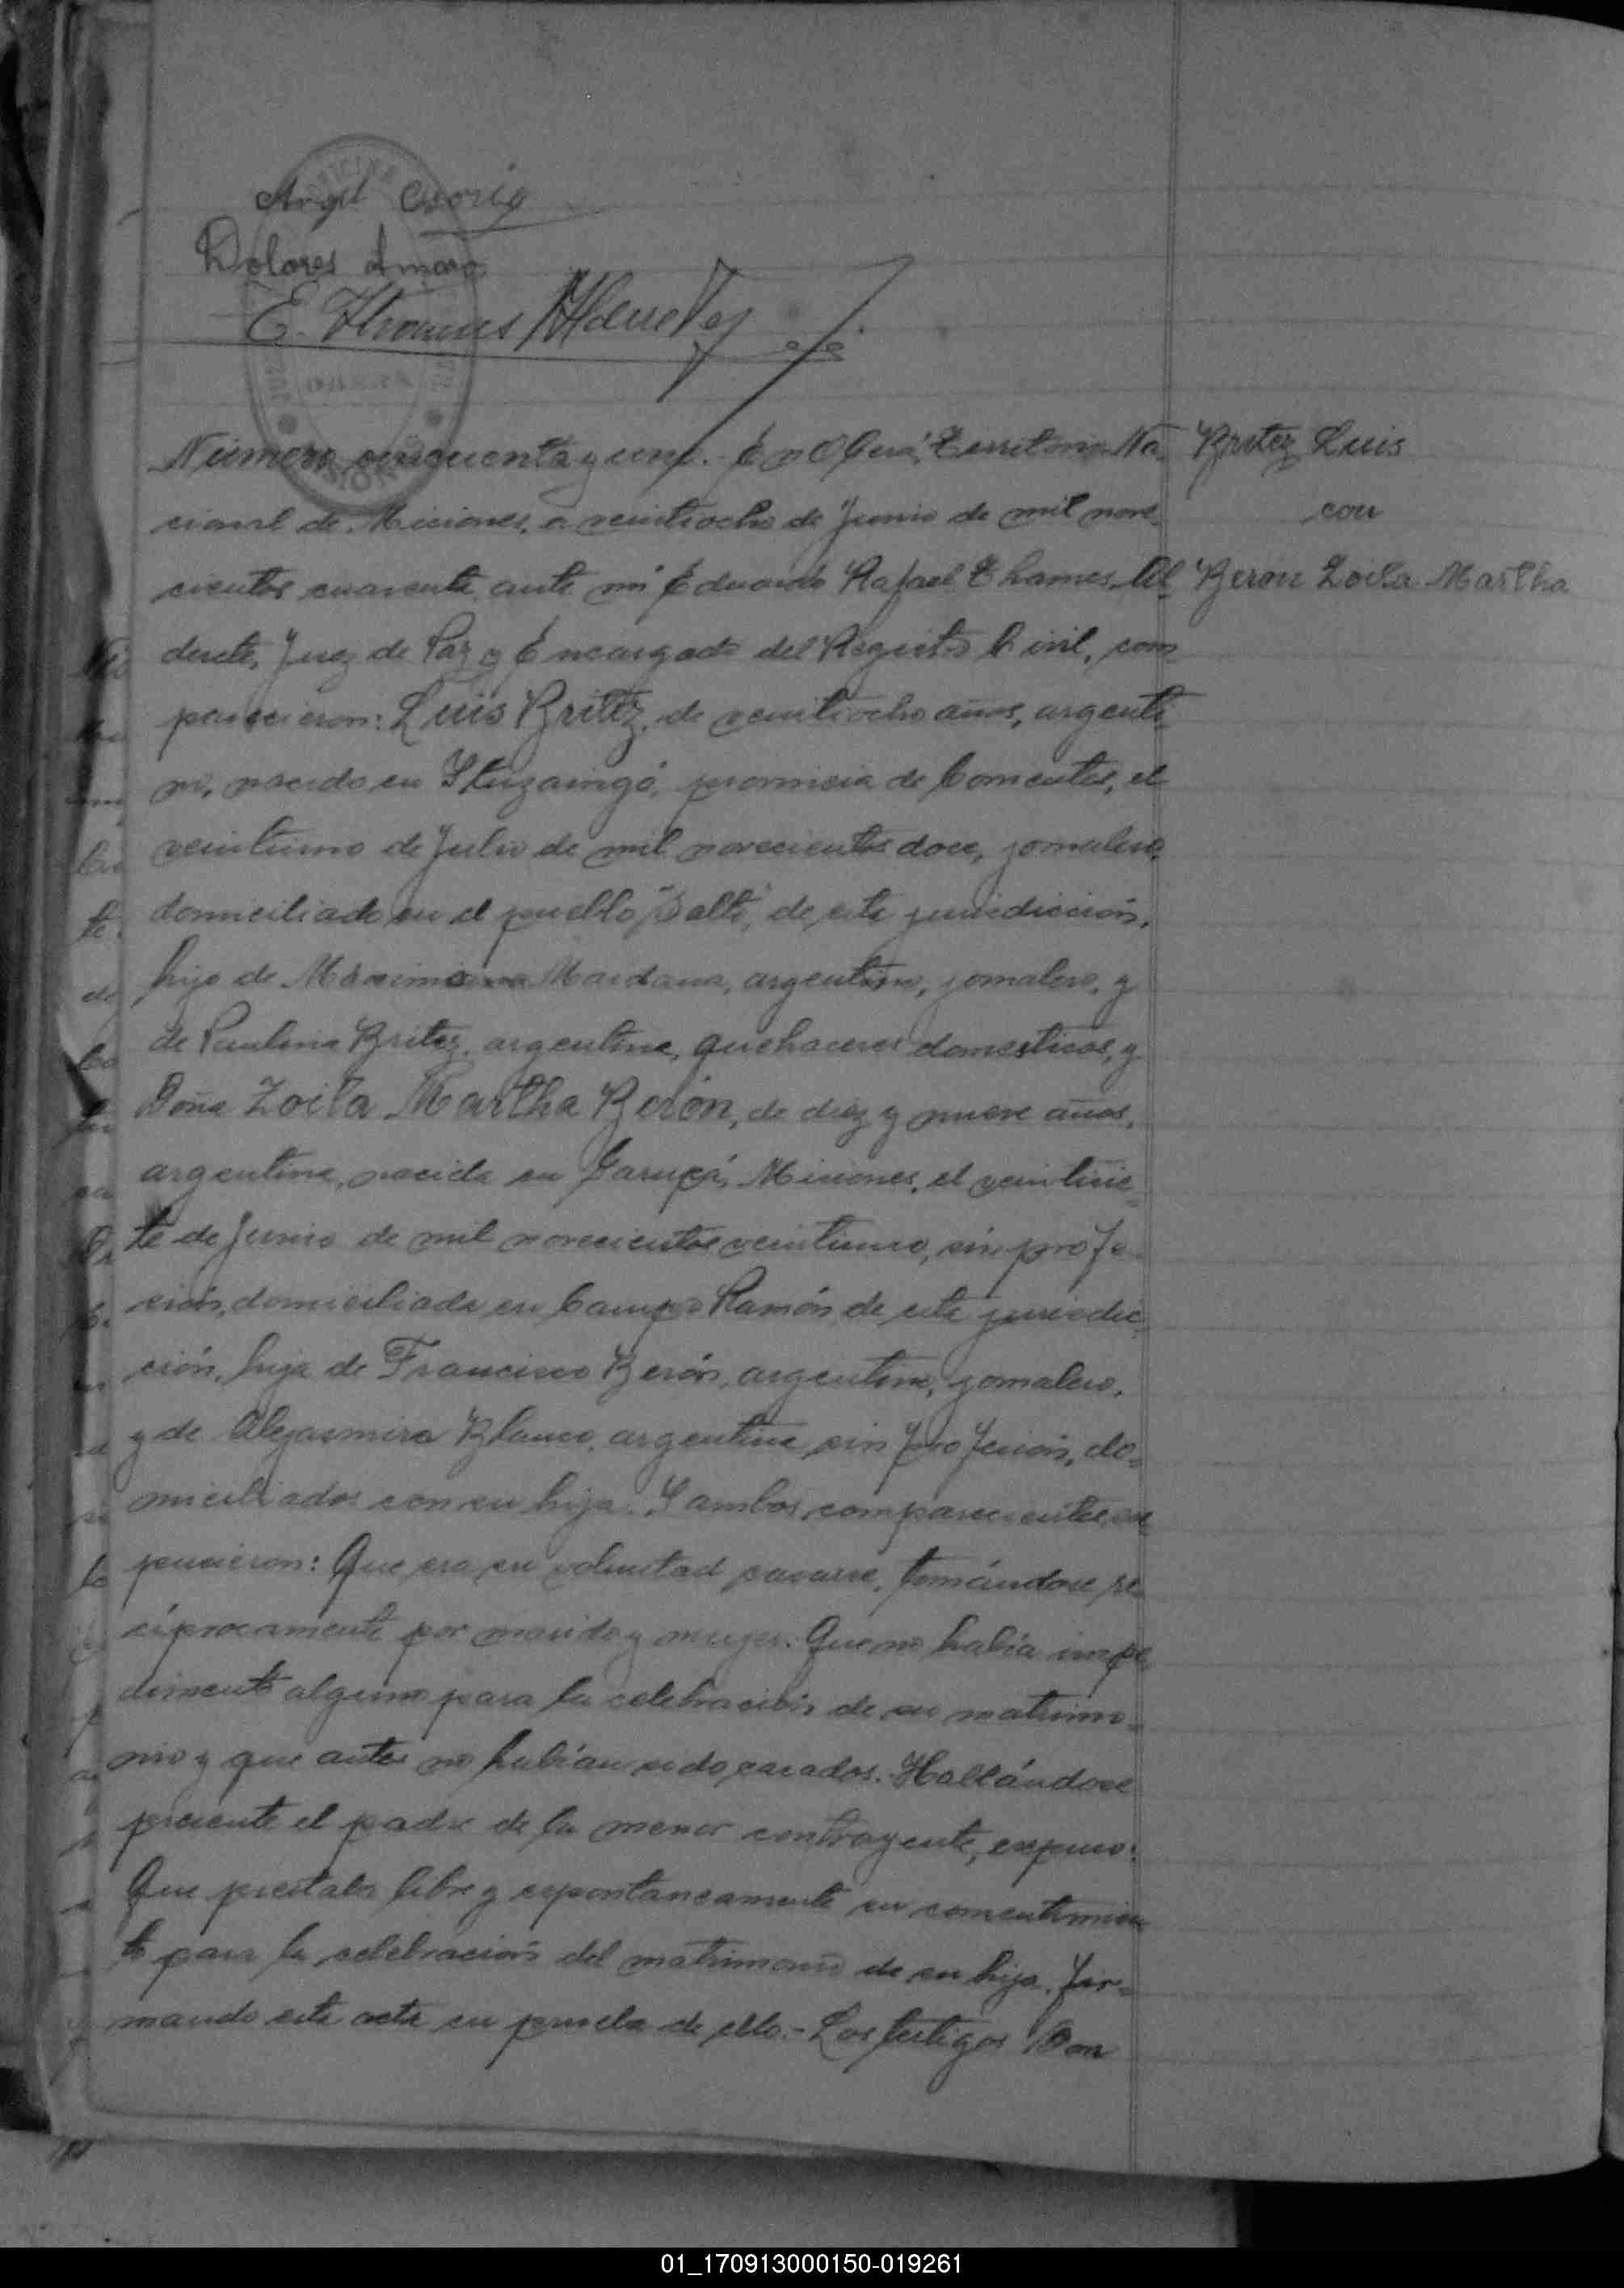 Angel Osorio
Dolores Amaro
E. Thames Alderete
OBERA
Número cincuenta y uno. En Oberá, Territorio Na-
cional de Misiones, a veintiocho de Junio de mil nove-
cientos cuarenta, ante mí Eduardo Rafael Thames Al-
derete, Juez de Paz y Encargado del Registro Civil, com-
parecieron: Luis Britez, de veintiocho años, argenti-
no, nacido en Ituzaingó, provincia de Corrientes, el
veintiuno de Julio de mil novecientos doce, jornalero,
domiciliado en el pueblo "Salto", de esta jurisdicción,
hijo de Maidana, argentino, jornalero, y
de Paulina Britez, argentina, quehaceres domesticos, y
Doña Zoila Martha Berón, de diez y nueve años,
argentina, nacida en Garupá, Misiones, el veintisie-
te de Junio de mil novecientos veintiuno, sin profe-
sión, domiciliada en Campo Ramón, de esta jurisdic-
ción, hija de Francisco Berón, argentino, jornalero,
y de Blanco, argentina, sin profesión, do-
miciliados con su hija. Y ambos comparecientes ex-
pusieron: Que era su voluntad casarse, tomándose re-
cíprocamente por marido y mujer. Que no había impe-
dimento alguno para la celebración de su matrimo-
nio y que antes no habían sido casados. Hallándose
presente el padre de la menor contrayente, expuso:
Que prestaba libre y espontaneamente su consentimien-
to para la celebración del matrimonio de su hija, fir-
mando esta acta en prueba de ello.- Los testigos Don
Britez Luis
con
Beron Zoila Martha
01_170913000150-019261